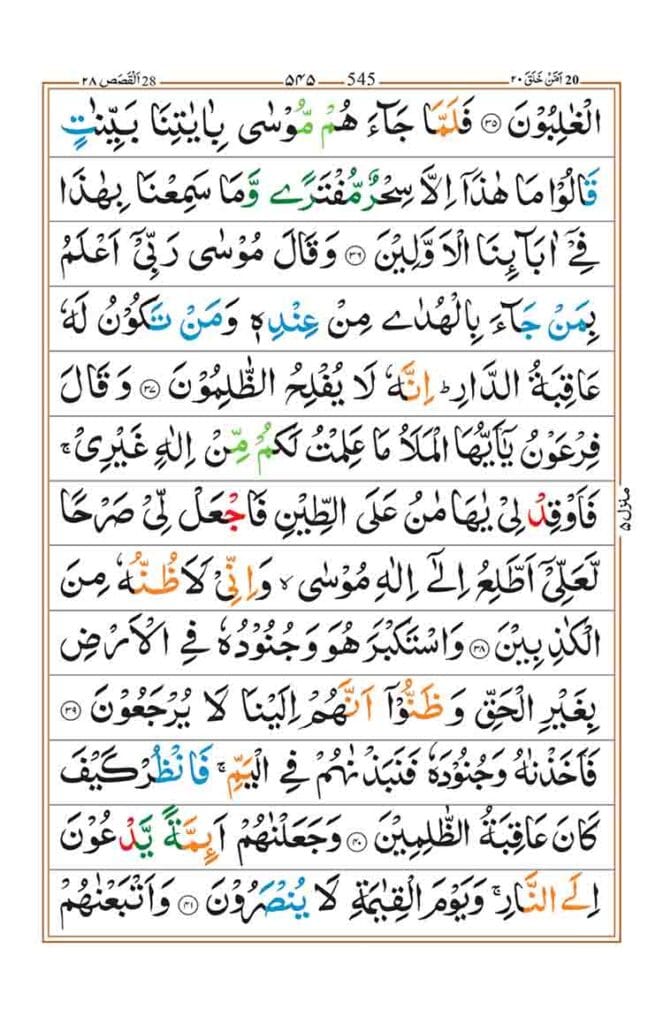 اَمَّنْ خَلَقَ ٢٠ 20 545 ۵۴۵ اَلْقَصَص ٢٨ 28
الْغٰلِبُوْنَ ۝۳۵ فَلَمَّا جَآءَ هُمْ مُّوْسٰى بِاٰيٰتِنَا بَيِّنٰتٍ
قَالُوْا مَا هٰذَاۤ اِلَّا سِحْرٌ مُّفْتَرًى وَّمَا سَمِعْنَا بِهٰذَا
فِيْۤ اٰبَآئِنَا الْاَوَّلِيْنَ ۝۳۶ وَقَالَ مُوْسٰى رَبِّيْۤ اَعْلَمُ
بِمَنْ جَآءَ بِالْهُدٰى مِنْ عِنْدِهٖ وَمَنْ تَكُوْنُ لَهٗ
عَاقِبَةُ الدَّارِ ؕ اِنَّهٗ لَا يُفْلِحُ الظّٰلِمُوْنَ ۝۳۷ وَقَالَ
فِرْعَوْنُ يٰۤاَيُّهَا الْمَلَاُ مَا عَلِمْتُ لَكُمْ مِّنْ اِلٰهٍ غَيْرِيْ ۚ
فَاَوْقِدْ لِيْ يٰهَا مٰنُ عَلَى الطِّيْنِ فَاجْعَلْ لِّيْ صَرْحًا
لَّعَلِّيْۤ اَطَّلِعُ اِلٰٓى اِلٰهِ مُوْسٰى ۙ وَاِنِّيْ لَاَظُنُّهٗ مِنَ
الْكٰذِبِيْنَ ۝۳۸ وَاسْتَكْبَرَ هُوَ وَجُنُوْدُهٗ فِي الْاَرْضِ
بِغَيْرِ الْحَقِّ وَظَنُّوْۤا اَنَّهُمْ اِلَيْنَا لَا يُرْجَعُوْنَ ۝۳۹
فَاَخَذْنٰهُ وَجُنُوْدَهٗ فَنَبَذْنٰهُمْ فِي الْيَمِّ ۚ فَانْظُرْ كَيْفَ
كَانَ عَاقِبَةُ الظّٰلِمِيْنَ ۝۴۰ وَجَعَلْنٰهُمْ اَئِمَّةً يَّدْعُوْنَ
اِلَى النَّارِ ۚ وَيَوْمَ الْقِيٰمَةِ لَا يُنْصَرُوْنَ ۝۴۱ وَاَتْبَعْنٰهُمْ
منزل ۵